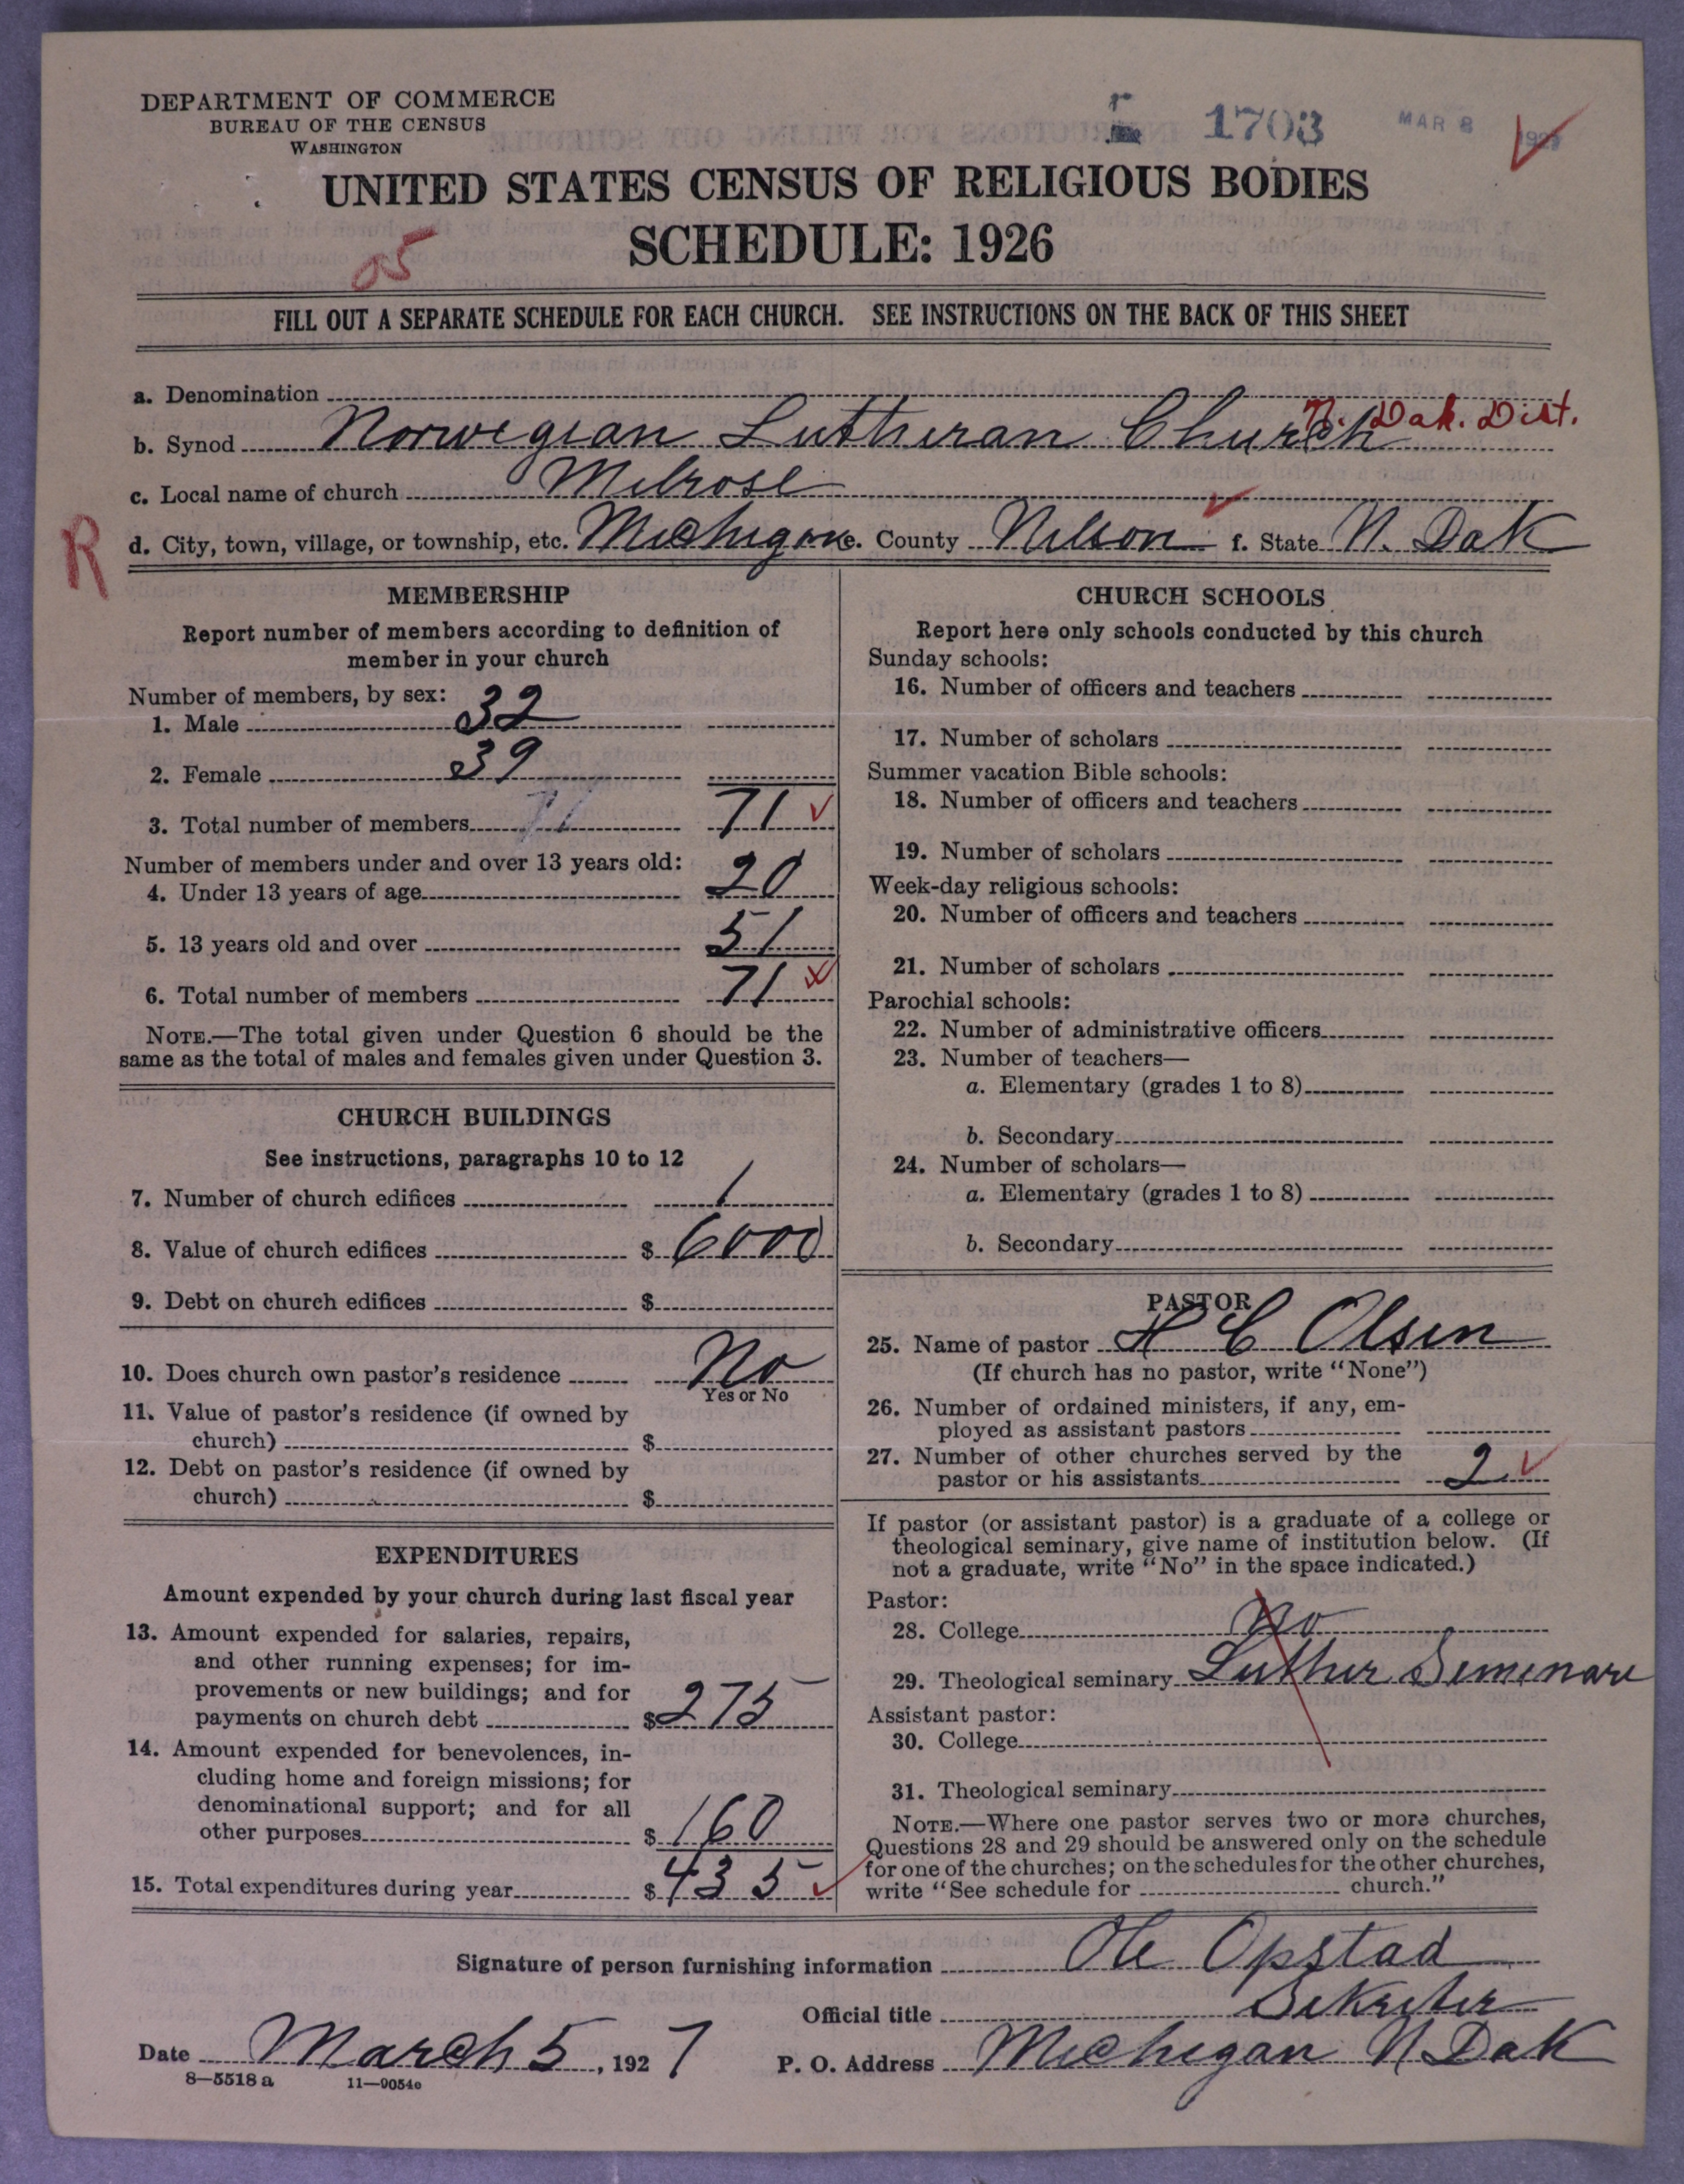 DEPARTMENT OF COMMERCE
BUREAU OF THE CENSUS
WASHINGTON
1703
MAR 8 1927
UNITED STATES CENSUS OF RELIGIOUS BODIES
SCHEDULE: 1926
05
FILL OUT A SEPARATE SCHEDULE FOR EACH CHURCH. SEE INSTRUCTIONS ON THE BACK OF THIS SHEET
a. Denomination
N. Dak. Dist.
b. Synod Norwegian Lutheran Church
c. Local name of church Melrose
R
d. City, town, village, or township, etc. Michigan e. County Nelson f. State N. Dak
MEMBERSHIP
Report number of members according to definition of
member in your church
Number of members, by sex:
1. Male 32
2. Female 39
3. Total number of members 71 71
Number of members under and over 13 years old:
4. Under 13 years of age 20
5. 13 years old and over 51
6. Total number of members 71
NOTE.—The total given under Question 6 should be the
same as the total of males and females given under Question 3.
CHURCH BUILDINGS
See instructions, paragraphs 10 to 12
7. Number of church edifices 1
8. Value of church edifices $ 6000
9. Debt on church edifices $
10. Does church own pastor's residence No
Yes or No
11. Value of pastor's residence (if owned by
church) $
12. Debt on pastor's residence (if owned by
church) $
EXPENDITURES
Amount expended by your church during last fiscal year
13. Amount expended for salaries, repairs,
and other running expenses; for im-
provements or new buildings; and for
payments on church debt $ 275
14. Amount expended for benevolences, in-
cluding home and foreign missions; for
denominational support; and for all
other purposes $ 160
15. Total expenditures during year $ 435
CHURCH SCHOOLS
Report here only schools conducted by this church
Sunday schools:
16. Number of officers and teachers
17. Number of scholars
Summer vacation Bible schools:
18. Number of officers and teachers
19. Number of scholars
Week-day religious schools:
20. Number of officers and teachers
21. Number of scholars
Parochial schools:
22. Number of administrative officers
23. Number of teachers—
a. Elementary (grades 1 to 8)
b. Secondary
24. Number of scholars—
a. Elementary (grades 1 to 8)
b. Secondary
PASTOR
25. Name of pastor H C Olsen
(If church has no pastor, write "None")
26. Number of ordained ministers, if any, em-
ployed as assistant pastors
27. Number of other churches served by the
pastor or his assistants 2
If pastor (or assistant pastor) is a graduate of a college or
theological seminary, give name of institution below. (If
not a graduate, write "No" in the space indicated.)
Pastor:
28. College No
29. Theological seminary Luther Seminare
Assistant pastor:
30. College
31. Theological seminary
NOTE.—Where one pastor serves two or more churches,
Questions 28 and 29 should be answered only on the schedule
for one of the churches; on the schedules for the other churches,
write "See schedule for church."
Signature of person furnishing information Ole Opstad
Official title Sekreter
Date March 5, 1927
P. O. Address Michigan N Dak
8—5518 a
11—9054c